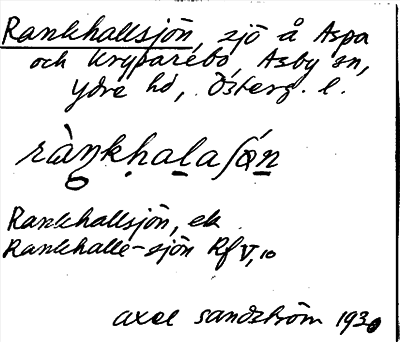 Rankhallsjön, sjö å Aspa
och Kryparebo, Asby sn,
Ydre hd, Österg. l.
ràŋkhalaʃǿn
Rankhallsjön, ek
Rankhalle-sjön Rf V, 10
Axel Sandström 1930